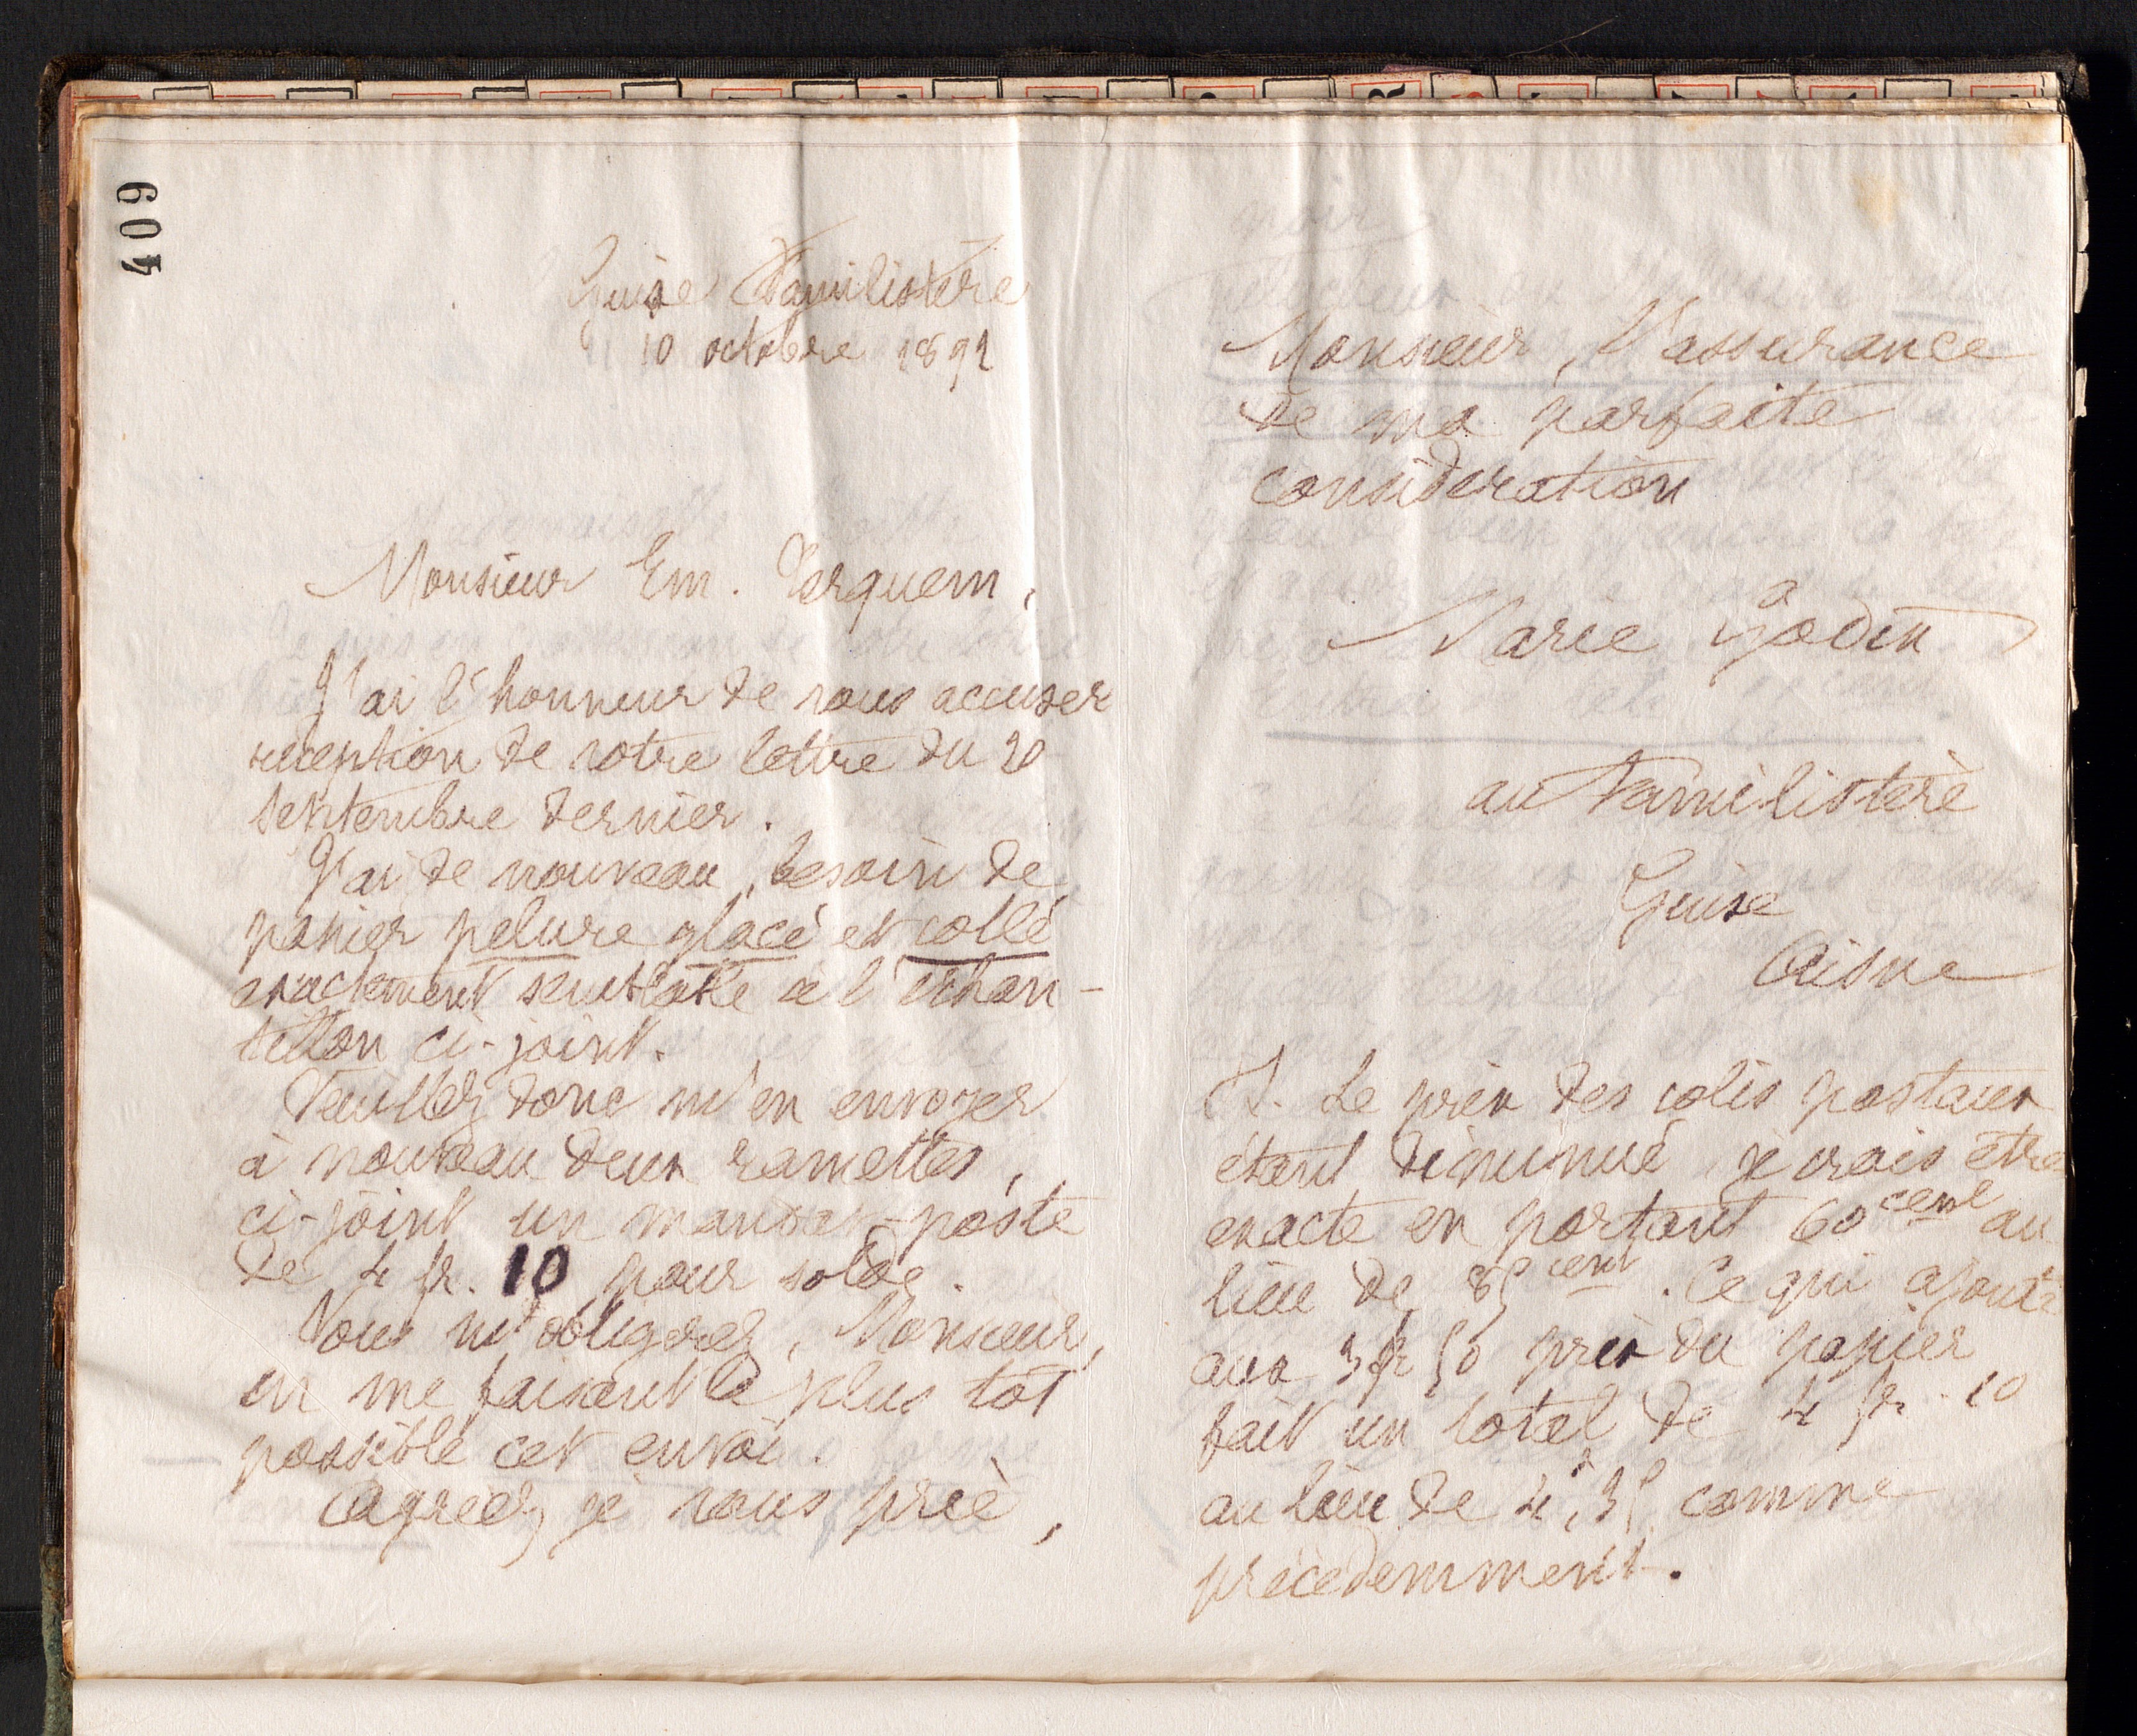 409
Guise Familistère
10 octobre 1892
Monsieur Em. Terquem,
J'ai l'honneur de vous accuser
réception de votre lettre du 20
septembre dernier.
J'ai de nouveau, besoin de
papier pelure glacé et collé
exactement semblable à l'échan-
tillon ci-joint.
Veuillez donc m'en envoyer
à nouveau deux ramettes,
ci-joint un mandat-poste
de 4 fr. 10 pour solde.
Vous m'obligerez, Monsieur,
en me faisant le plus tôt
possible cet envoi.
Agréez, je vous prie,
Monsieur, l'assurance
de ma parfaite
considération
Marie Godin
au Familistère
Guise
Aisne
P.S. Le prix des colis postaux
étant diminué je crois être
exacte en portant 60 cent au
lieu de 85 cent. Ce qui ajouté
aux 3 fr 50 prix du papier
fait un total de 4 fr. 10
au lieu de 4f,35 comme
précédemment.